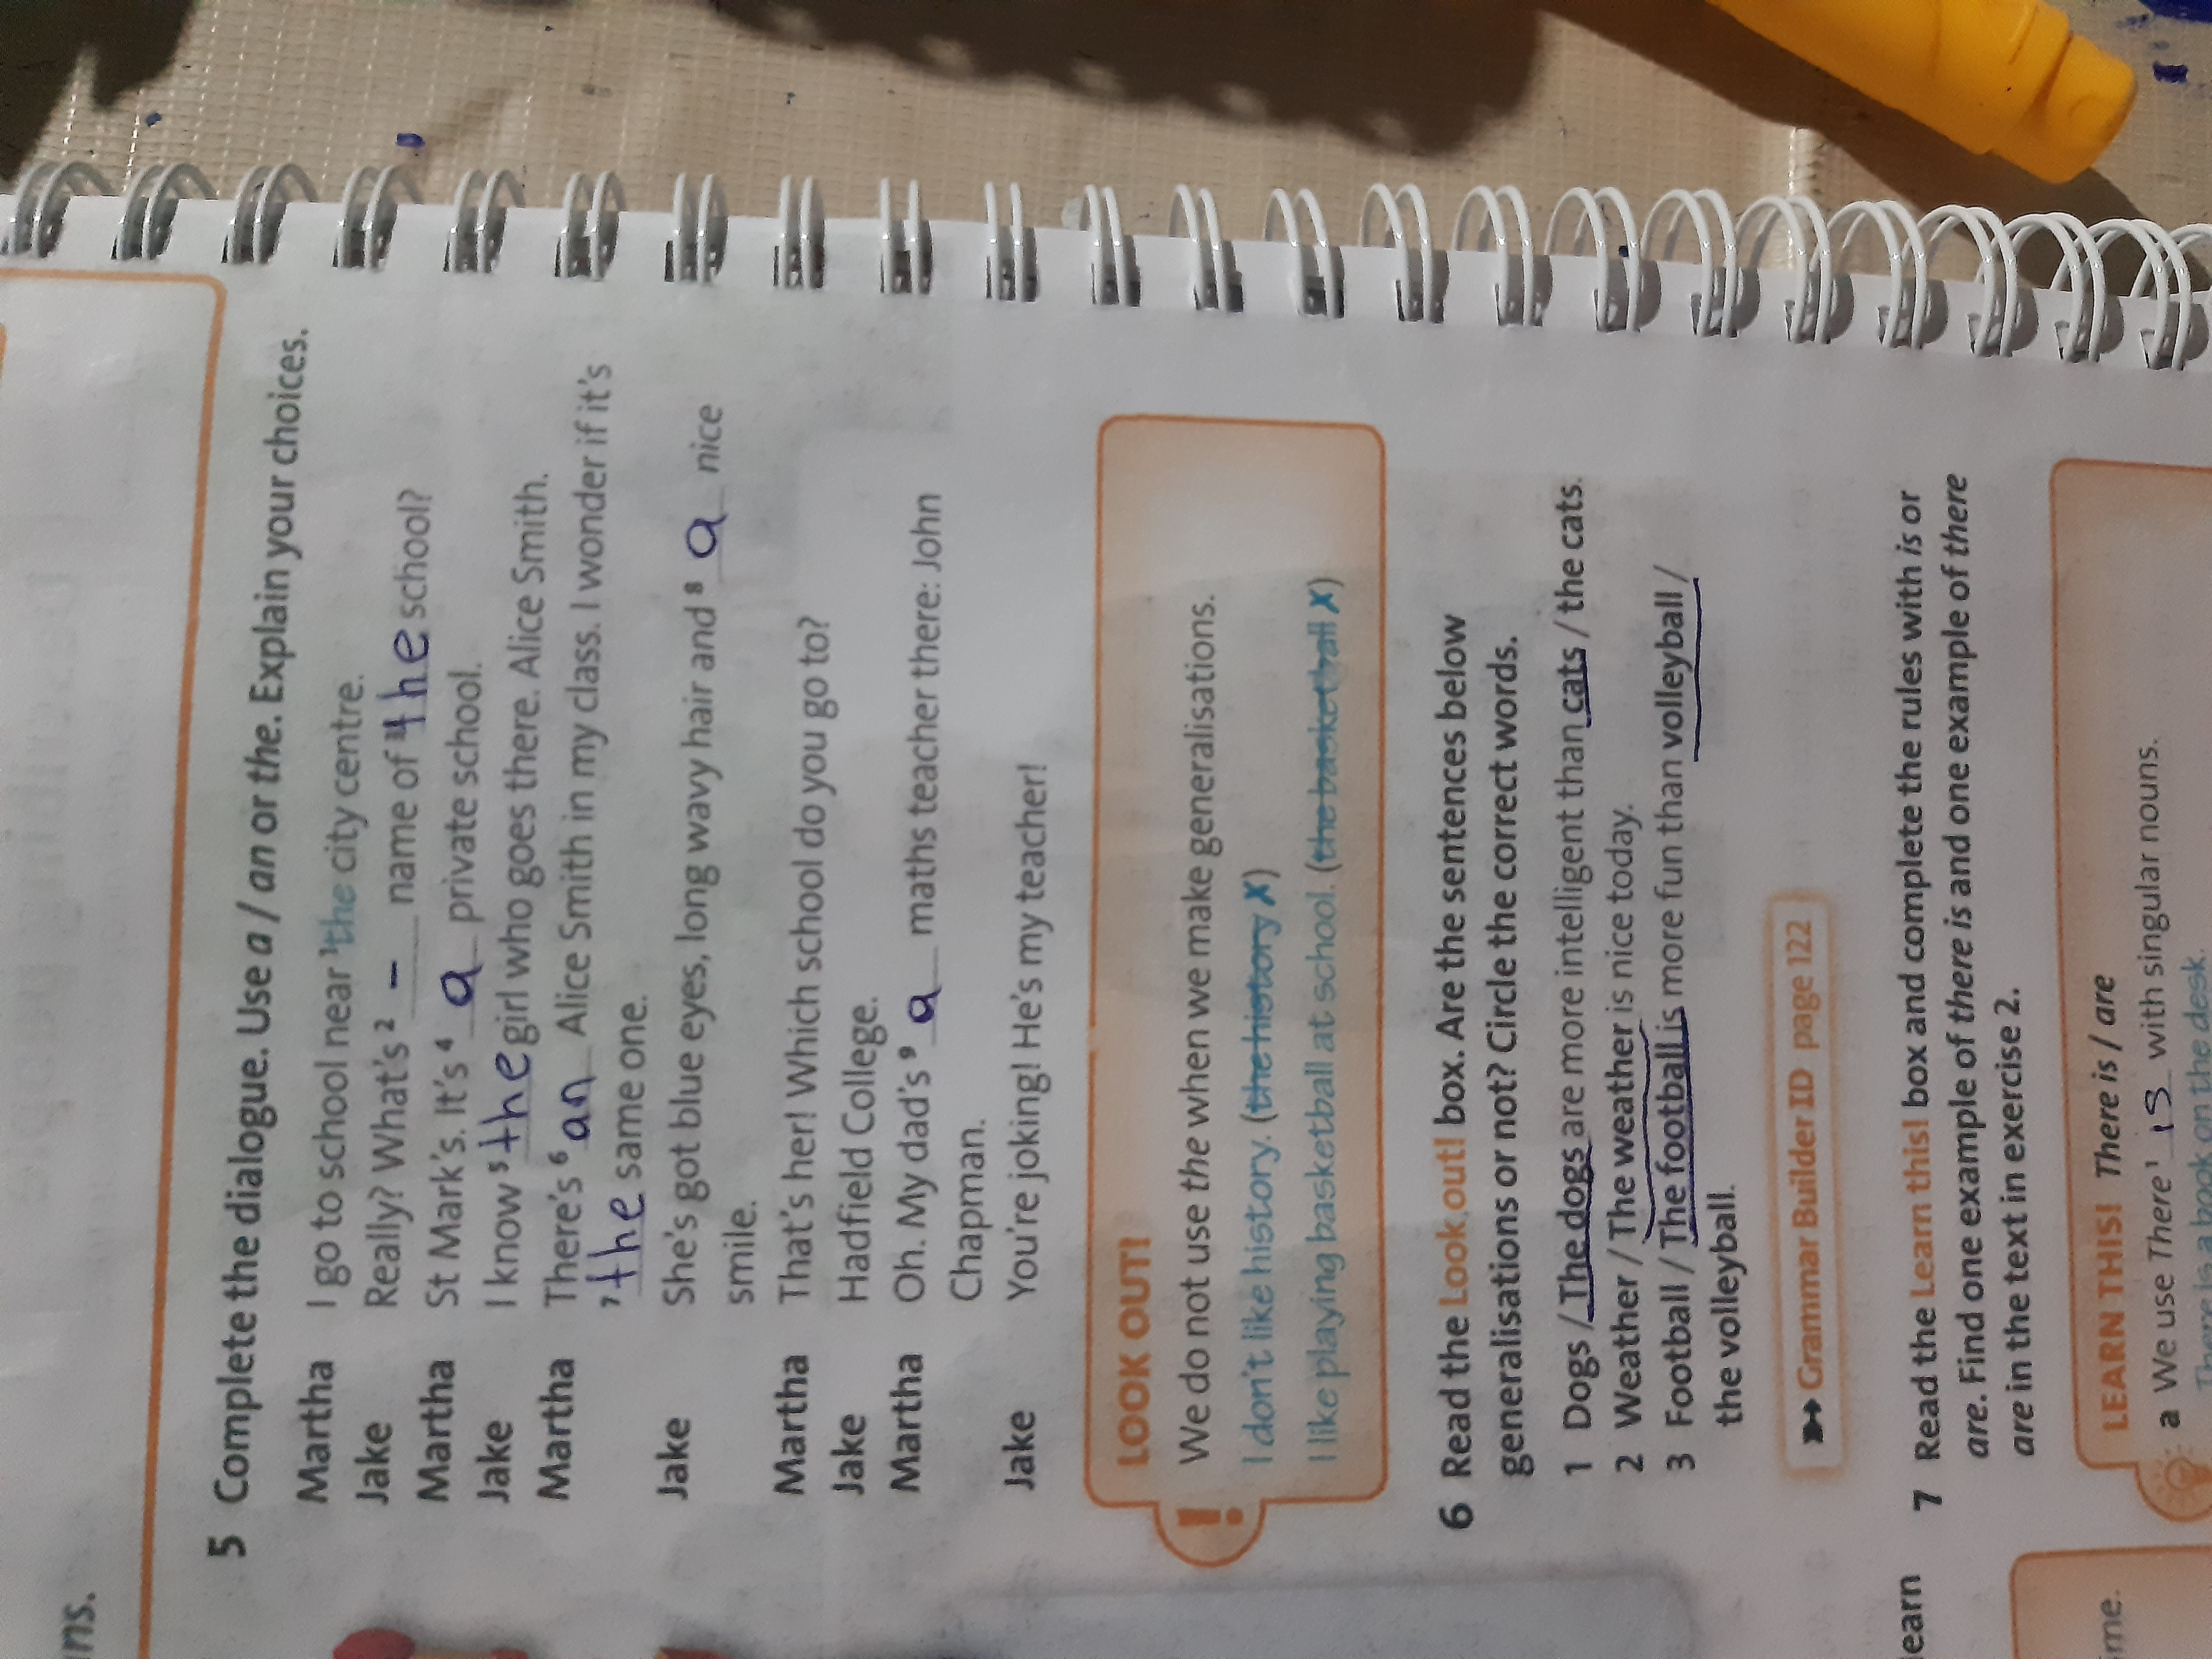 ns.
5 Complete the dialogue. Use a / an or the. Explain your choices.
Martha I go to school near 1 the city centre.
Jake Really? What's 2 – name of 3 the school?
Martha St Mark's. It's 4 a private school.
Jake I know 5 the girl who goes there. Alice Smith.
Martha There's 6 an Alice Smith in my class. I wonder if it's
7 the same one.
Jake She's got blue eyes, long wavy hair and 8 a nice
smile.
Martha That's her! Which school do you go to?
Jake Hadfield College.
Martha Oh. My dad's 9 a maths teacher there: John
Chapman.
Jake You're joking! He's my teacher!
! LOOK OUT!
We do not use the when we make generalisations.
I don't like history. (the history ✗)
I like playing basketball at school. (the basketball ✗)
6 Read the Look out! box. Are the sentences below
generalisations or not? Circle the correct words.
1 Dogs / The dogs are more intelligent than cats / the cats.
2 Weather / The weather is nice today.
3 Football / The football is more fun than volleyball /
the volleyball.
Grammar Builder 1D page 122
earn
7 Read the Learn this! box and complete the rules with is or
are. Find one example of there is and one example of there
are in the text in exercise 2.
me.
LEARN THIS! There is / are
a We use There 1 is with singular nouns.
There is a book on the desk.